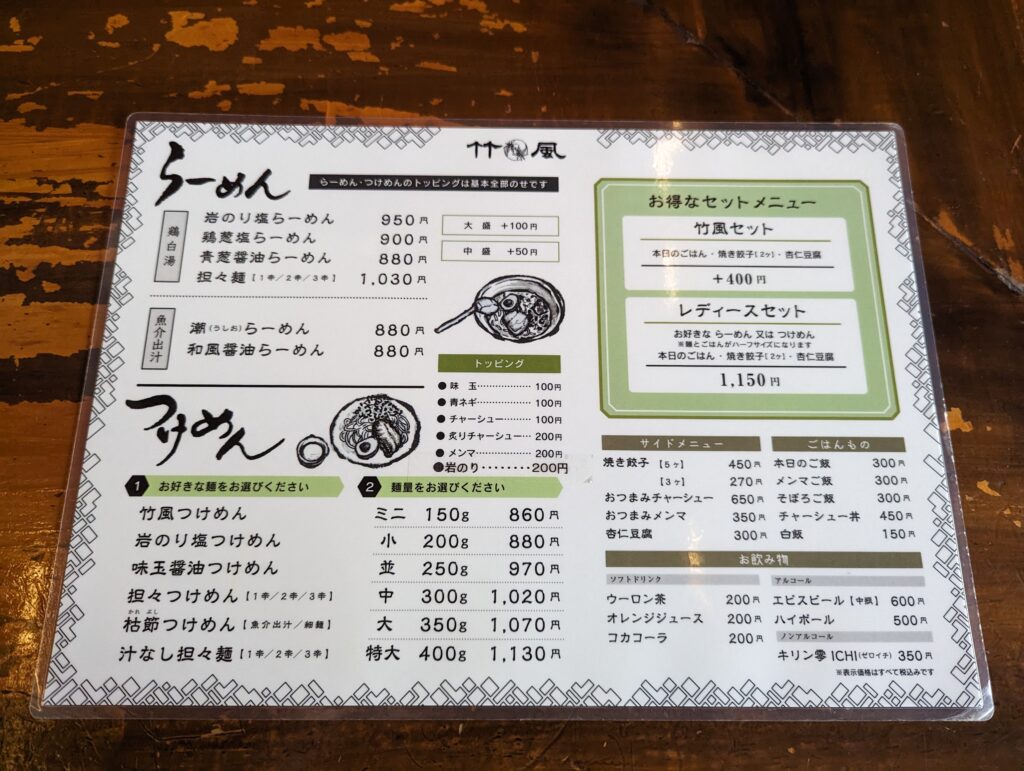 竹風
らーめん
らーめん・つけめんのトッピングは基本全部のせです
鶏白湯
岩のり塩らーめん 950円
鶏葱塩らーめん 900円
青葱醤油らーめん 880円
担々麺【1辛/2辛/3辛】 1,030円
大盛 +100円
中盛 +50円
魚介出汁
潮(うしお)らーめん 880円
和風醤油らーめん 880円
トッピング
●味 玉………… 100円
●青ネギ………… 100円
●チャーシュー……… 100円
●炙りチャーシュー… 200円
●メンマ………… 200円
●岩のり‥‥‥‥200円
つけめん
1 お好きな麺をお選びください
竹風つけめん
岩のり塩つけめん
味玉醤油つけめん
担々つけめん【1辛/2辛/3辛】
かれ よし
枯節つけめん【魚介出汁/細麺】
汁なし担々麺【1辛/2辛/3辛】
2 麺量をお選びください
ミニ 150g 860円
小 200g 880円
並 250g 970円
中 300g 1,020円
大 350g 1,070円
特大 400g 1,130円
お得なセットメニュー
竹風セット
本日のごはん・焼き餃子[2ヶ]・杏仁豆腐
+400円
レディースセット
お好きな らーめん 又は つけめん
※麺とごはんがハーフサイズになります
本日のごはん・焼き餃子[2ヶ]・杏仁豆腐
1,150円
サイドメニュー
焼き餃子【5ヶ】 450円
【3ヶ】 270円
おつまみチャーシュー 650円
おつまみメンマ 350円
杏仁豆腐 300円
ごはんもの
本日のご飯 300円
メンマご飯 300円
そぼろご飯 300円
チャーシュー丼 450円
白飯 150円
お飲み物
ソフトドリンク
ウーロン茶 200円
オレンジジュース 200円
コカコーラ 200円
アルコール
エビスビール【中瓶】 600円
ハイボール 500円
ノンアルコール
キリン零 ICHI(ゼロイチ) 350円
※表示価格はすべて税込みです